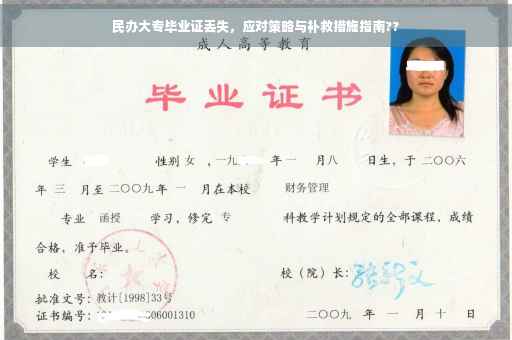 民办大专毕业证丢失，应对策略与补救措施指南??
成人高等教育
毕业证书
学生 性别 女 ，一九 年一 月八 日生，于二〇〇六
年 三 月至二〇〇九年 一 月在本校 财务管理
专业 函授 学习，修完 专 科教学计划规定的全部课程，成绩
合格，准予毕业。
校 名： 校（院）长：
批准文号：教计[1998]33号
证书编号： 06001310 二〇〇九 年 一 月 十 日